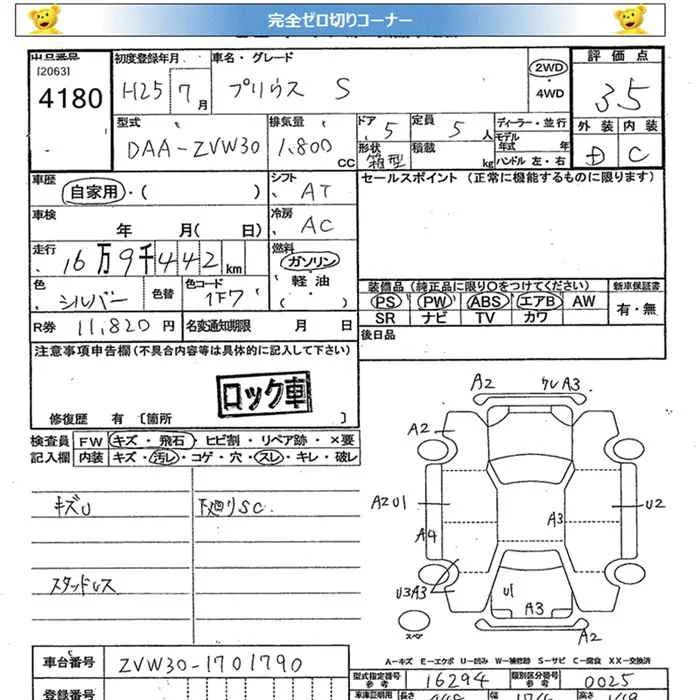 完全ゼロ切りコーナー
出品番号 初度登録年月 車名・グレード 評価点
[2063] H25 7月 プリウス S 2WD 3.5
4180 4WD
型式 排気量 ドア 5 定員 5人 ディーラー・並行 外装 内装
DAA-ZVW30 1,800cc 形状 箱型 積載 kg モデル年式 年 D C
ハンドル 左・右
車歴 自家用・( ) シフト AT セールスポイント(正常に機能するものに限ります)
車検 年 月( 日) 冷房 AC
走行 16万9千442km 燃料 ガソリン
軽油
( )
色 シルバー 色替 色コード 1F7 装備品(純正品に限り○をつけてください) 新車保証書
PS PW ABS エアB AW 有・無
SR ナビ TV カワ
R券 11,820円 名変通知期限 月 日 後日品
注意事項申告欄(不具合内容等は具体的に記入して下さい)
ロック車
修復歴 有〔箇所 〕
検査員 FW キズ・飛石・ヒビ割・リペア跡・×要
記入欄 内装 キズ・汚レ・コゲ・穴・スレ・キレ・破レ
キズU 下廻りSC
スタッドレス
A2 A3
A2
A2U1 A3 U2
A4
U3A3 U1
A3
A2
スペア
A-キズ E-エクボ U-凹み W-補修跡 S-サビ C-腐食 XX-交換済
車台番号 ZVW30-1701790 型式指定番号 参考 16294 類別区分番号 参考 0025
登録番号 車庫証明用 長さ 幅 高さ